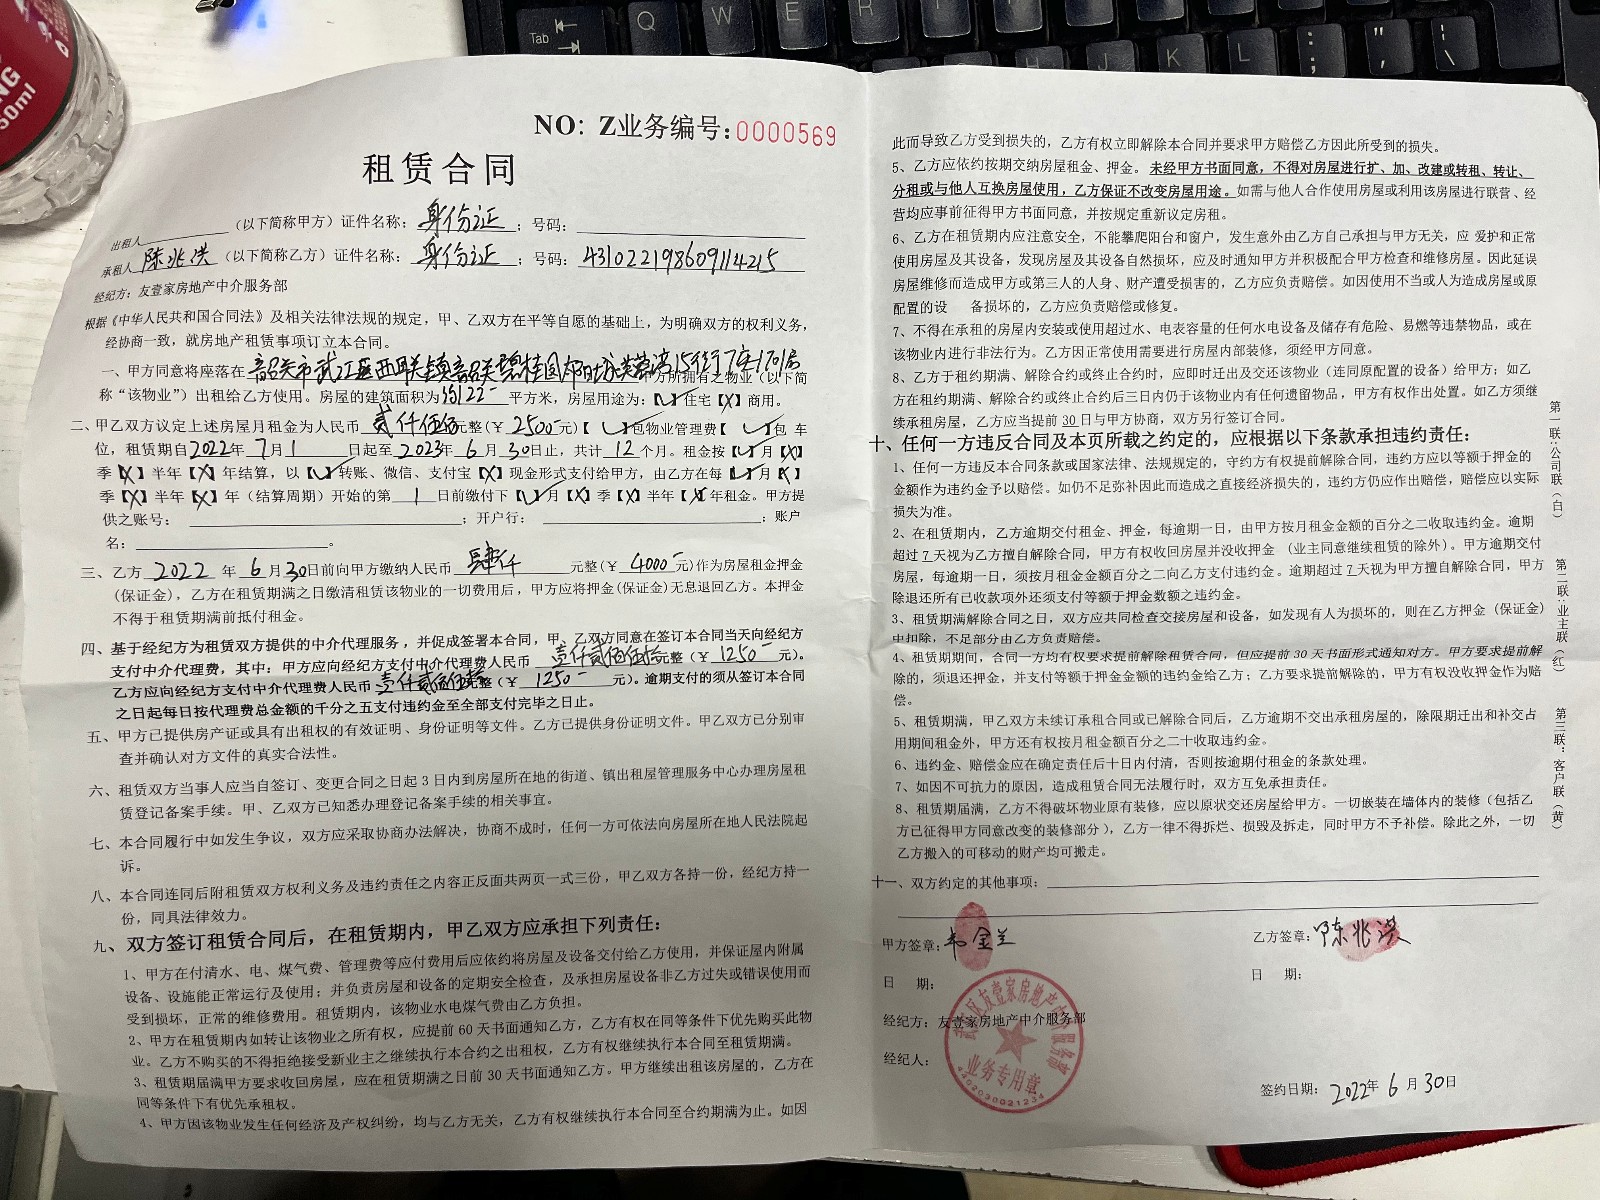 Tab
Q
W
E
R
NG
50ml
NO：Z业务编号：0000569
租赁合同
出租人 （以下简称甲方）证件名称：身份证；号码：
承租人 陈兆洪（以下简称乙方）证件名称：身份证；号码：431022198609114215
经纪方：友壹家房地产中介服务部
根据《中华人民共和国合同法》及相关法律法规的规定，甲、乙双方在平等自愿的基础上，为明确双方的权利义务，
经协商一致，就房地产租赁事项订立本合同。
一、甲方同意将座落在 韶关市武江区西联镇韶关碧桂园 15街7座1701房 甲方所拥有之物业（以下简
称“该物业”）出租给乙方使用。房屋的建筑面积为约122平方米，房屋用途为：【√】住宅【X】商用。
二、甲乙双方议定上述房屋月租金为人民币 贰仟伍佰元整（￥2500元）【√】包物业管理费【√】包 车
位，租赁期自2022年7月1日起至2023年6月30日止，共计12个月。租金按【√】月【X】
季【X】半年【X】年结算，以【√】转账、微信、支付宝【X】现金形式支付给甲方，由乙方在每【√】月【X】
季【X】半年【X】年（结算周期）开始的第1日前缴付下【√】月【X】季【X】半年【X】年租金。甲方提
供之账号： ；开户行： ；账户
名： 。
三、乙方2022年6月30日前向甲方缴纳人民币 肆仟 元整（￥4000元）作为房屋租金押金
（保证金），乙方在租赁期满之日缴清租赁该物业的一切费用后，甲方应将押金（保证金）无息退回乙方。本押金
不得于租赁期满前抵付租金。
四、基于经纪方为租赁双方提供的中介代理服务，并促成签署本合同，甲、乙双方同意在签订本合同当天向经纪方
支付中介代理费，其中：甲方应向经纪方支付中介代理费人民币 壹仟贰佰伍拾元整（￥1250元）。
乙方应向经纪方支付中介代理费人民币 壹仟贰佰伍拾元整（￥1250元）。逾期支付的须从签订本合同
之日起每日按代理费总金额的千分之五支付违约金至全部支付完毕之日止。
五、甲方已提供房产证或具有出租权的有效证明、身份证明文件。乙方已提供身份证明文件。甲乙双方已分别审
查并确认对方文件的真实合法性。
六、租赁双方当事人应当自签订、变更合同之日起3日内到房屋所在地的街道、镇出租屋管理服务中心办理房屋租
赁登记备案手续。甲、乙双方已知悉办理登记备案手续的相关事宜。
七、本合同履行中如发生争议，双方应采取协商办法解决，协商不成时，任何一方可依法向房屋所在地人民法院起
诉。
八、本合同连同后附租赁双方权利义务及违约责任之内容正反面共两页一式三份，甲乙双方各持一份，经纪方持一
份，同具法律效力。
九、双方签订租赁合同后，在租赁期内，甲乙双方应承担下列责任：
1、甲方在付清水、电、煤气费、管理费等应付费用后应依约将房屋及设备交付给乙方使用，并保证屋内附属
设备、设施能正常运行及使用；并负责房屋和设备的定期安全检查，及承担房屋设备非乙方过失或错误使用而
受到损坏，正常的维修费用。租赁期内，该物业水电煤气费由乙方负担。
2、甲方在租赁期内如转让该物业之所有权，应提前60天书面通知乙方，乙方有权在同等条件下优先购买此物
业。乙方不购买的不得拒绝接受新业主之继续执行本合约之出租权，乙方有权继续执行本合同至租赁期满。
3、租赁期届满甲方要求收回房屋，应在租赁期满之日前30天书面通知乙方。甲方继续出租该房屋的，乙方在
同等条件下有优先承租权。
4、甲方因该物业发生任何经济及产权纠纷，均与乙方无关，乙方有权继续执行本合同至合约期满为止。如因
此而导致乙方受到损失的，乙方有权立即解除本合同并要求甲方赔偿乙方因此所受到的损失。
5、乙方应依约按期交纳房屋租金、押金。未经甲方书面同意，不得对房屋进行扩、加、改建或转租、转让、
分租或与他人互换房屋使用，乙方保证不改变房屋用途。如需与他人合作使用房屋或利用该房屋进行联营、经
营均应事前征得甲方书面同意，并按规定重新议定房租。
6、乙方在租赁期内应注意安全，不能攀爬阳台和窗户，发生意外由乙方自己承担与甲方无关，应 爱护和正常
使用房屋及其设备，发现房屋及其设备自然损坏，应及时通知甲方并积极配合甲方检查和维修房屋。因此延误
房屋维修而造成甲方或第三人的人身、财产遭受损害的，乙方应负责赔偿。如因使用不当或人为造成房屋或原
配置的设 备损坏的，乙方应负责赔偿或修复。
7、不得在承租的房屋内安装或使用超过水、电表容量的任何水电设备及储存有危险、易燃等违禁物品，或在
该物业内进行非法行为。乙方因正常使用需要进行房屋内部装修，须经甲方同意。
8、乙方于租约期满、解除合约或终止合约时，应即时迁出及交还该物业（连同原配置的设备）给甲方；如乙
方在租约期满、解除合约或终止合约后三日内仍于该物业内有任何遗留物品，甲方有权作出处置。如乙方须继
续承租房屋，乙方应当提前30日与甲方协商，双方另行签订合同。
十、任何一方违反合同及本页所载之约定的，应根据以下条款承担违约责任：
1、任何一方违反本合同条款或国家法律、法规规定的，守约方有权提前解除合同，违约方应以等额于押金的
金额作为违约金予以赔偿。如仍不足弥补因此而造成之直接经济损失的，违约方仍应作出赔偿，赔偿应以实际
损失为准。
2、在租赁期内，乙方逾期交付租金、押金，每逾期一日，由甲方按月租金金额的百分之二收取违约金。逾期
超过7天视为乙方擅自解除合同，甲方有权收回房屋并没收押金（业主同意继续租赁的除外）。甲方逾期交付
房屋，每逾期一日，须按月租金金额百分之二向乙方支付违约金。逾期超过7天视为甲方擅自解除合同，甲方
除退还所有已收款项外还须支付等额于押金数额之违约金。
3、租赁期满解除合同之日，双方应共同检查交接房屋和设备，如发现有人为损坏的，则在乙方押金（保证金）
中扣除，不足部分由乙方负责赔偿。
4、租赁期期间，合同一方均有权要求提前解除租赁合同，但应提前30天书面形式通知对方。甲方要求提前解
除的，须退还押金，并支付等额于押金金额的违约金给乙方；乙方要求提前解除的，甲方有权没收押金作为赔
偿。
5、租赁期满，甲乙双方未续订承租合同或已解除合同后，乙方逾期不交出承租房屋的，除限期迁出和补交占
用期间租金外，甲方还有权按月租金额百分之二十收取违约金。
6、违约金、赔偿金应在确定责任后十日内付清，否则按逾期付租金的条款处理。
7、如因不可抗力的原因，造成租赁合同无法履行时，双方互免承担责任。
8、租赁期届满，乙方不得破坏物业原有装修，应以原状交还房屋给甲方。一切嵌装在墙体内的装修（包括乙
方已征得甲方同意改变的装修部分），乙方一律不得拆烂、损毁及拆走，同时甲方不予补偿。除此之外，一切
乙方搬入的可移动的财产均可搬走。
十一、双方约定的其他事项：
甲方签章： 金兰
乙方签章：陈兆洪
日 期：
日 期：
经纪方：友壹家房地产中介服务部
经纪人：
武江区友壹家房地产中介服务部
业务专用章
4402030021234
签约日期：2022年6月30日
第一联：公司联（白）
第二联：业主联（红）
第三联：客户联（黄）